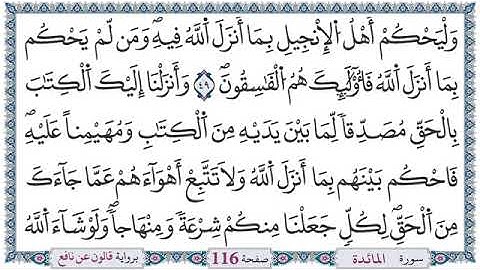 وَلْيَحْكُمْ أَهْلُ الْإِنجِيلِ بِمَا أَنزَلَ اللَّهُ فِيهِ وَمَن لَّمْ يَحْكُم
بِمَا أَنزَلَ اللَّهُ فَأُوْلَٰٓئِكَ هُمُ الْفَاسِقُونَ ٤٩ وَأَنزَلْنَا إِلَيْكَ الْكِتَابَ
بِالْحَقِّ مُصَدِّقاً لِّمَا بَيْنَ يَدَيْهِ مِنَ الْكِتَابِ وَمُهَيْمِناً عَلَيْهِ
فَاحْكُم بَيْنَهُم بِمَا أَنزَلَ اللَّهُ وَلَا تَتَّبِعْ أَهْوَاءَهُمْ عَمَّا جَاءَكَ
مِنَ الْحَقِّ لِكُلٍّ جَعَلْنَا مِنكُمْ شِرْعَةً وَمِنْهَاجاً وَلَوْ شَاءَ اللَّهُ
سورة المائدة صفحة 116 برواية قالون عن نافع